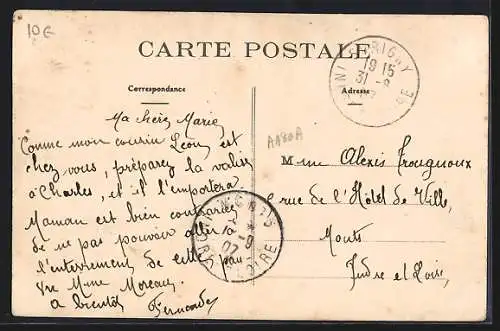 10€
CARTE POSTALE
Correspondance
Adresse
19 15
31 -8
Ma chère Marie
Comme mon cousin Léon est
chez vous, préparez la valise
à Charles, et il l'emportera
Maman est bien contrariée
de ne pas pouvoir aller à
l'enterrement de cette pau-
vre Mme Moreau.
à bientôt Fernande
Mme Alexis
rue de l'Hôtel de Ville,
Monts
Indre et Loire